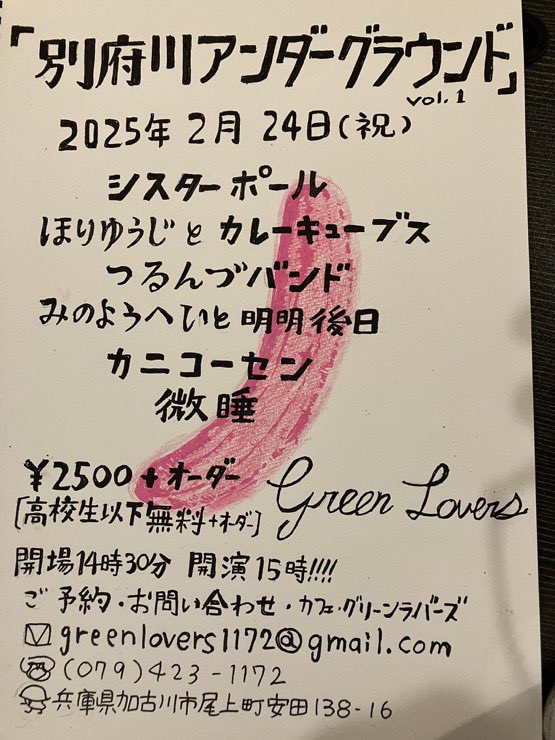 「別府川アンダーグラウンド」
vol.1
2025年2月24日(祝)
シスターポール
ほりゆうじとカレーキューブス
つるんづバンド
みのようへいと明明後日
カニコーセン
微睡
¥2500+オーダー
[高校生以下無料+オーダー]
Green Lovers
開場14時30分 開演15時!!!!
ご予約・お問い合わせ・カフェ・グリーンラバーズ
greenlovers1172@gmail.com
(079)423-1172
兵庫県加古川市尾上町安田138-16